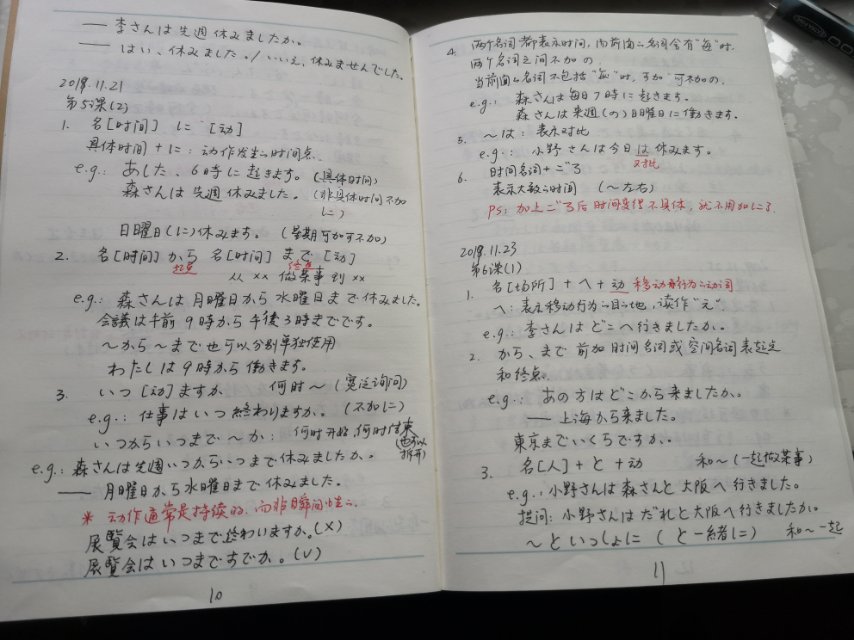 — 李さんは先週休みましたか。
— はい、休みました。/ いいえ、休みませんでした。
2019.11.21
第5课(2)
1. 名[时间] に [动]
具体时间+に：动作发生の时间点.
e.g.: あした、6時に起きます。(具体时间)
森さんは先週休みました。(非具体时间不加に)
日曜日(に)休みます。(星期可加可不加)
2. 名[时间] から 名[时间] まで [动]
起点 终点
从 xx 做某事 到 xx
e.g.: 森さんは月曜日から水曜日まで休みました。
会議は午前9時から午後3時までです。
～から～まで也可以分别单独使用
わたしは9時から働きます。
3. いつ [动] ますか 何时～ (宽泛询问)
e.g.: 仕事はいつ終わりますか。(不加に)
いつからいつまで～か: 何时开始,何时结束 (也可以拆开)
e.g.: 森さんは先週いつからいつまで休みましたか。
— 月曜日から水曜日まで休みました。
* 动作通常是持续的,而非瞬间性の
展覧会はいつまで終わいますか。(X)
展覧会はいつまですでか。(V)
10
4. 两个名词都表示时间,而前面の名词含有"每"时,
两个名词之间不加の.
当前面の名词不包括"每"时,可加可不加の.
e.g.: 森さんは毎日7時に起きます。
森さんは来週(の)日曜日に働きます。
5. ～は: 表示对比
e.g.: 小野さんは今日は休みます。
对比
6. 时间名词+ごろ
表示大致の时间 (～左右)
PS: 加上ごろ后时间变得不具体,就不用加に了
2019.11.23
第6课(1)
1. 名[场所]+へ+动 移动行为の动词
へ: 表示移动行为の目の地,读作"え"
e.g.: 李さんはどこへ行きましたか。
2. から、まで 前加时间名词或空间名词表起点
和终点.
e.g.: あの方はどこから来ましたか。
— 上海から来ました。
東京までいくらですか。
3. 名[人]+と+动 和～(一起做某事)
e.g.: 小野さんは森さんと大阪へ行きました。
提问: 小野さんはだれと大阪へ行きましたか。
～といっしょに (と一緒に) 和～一起
11